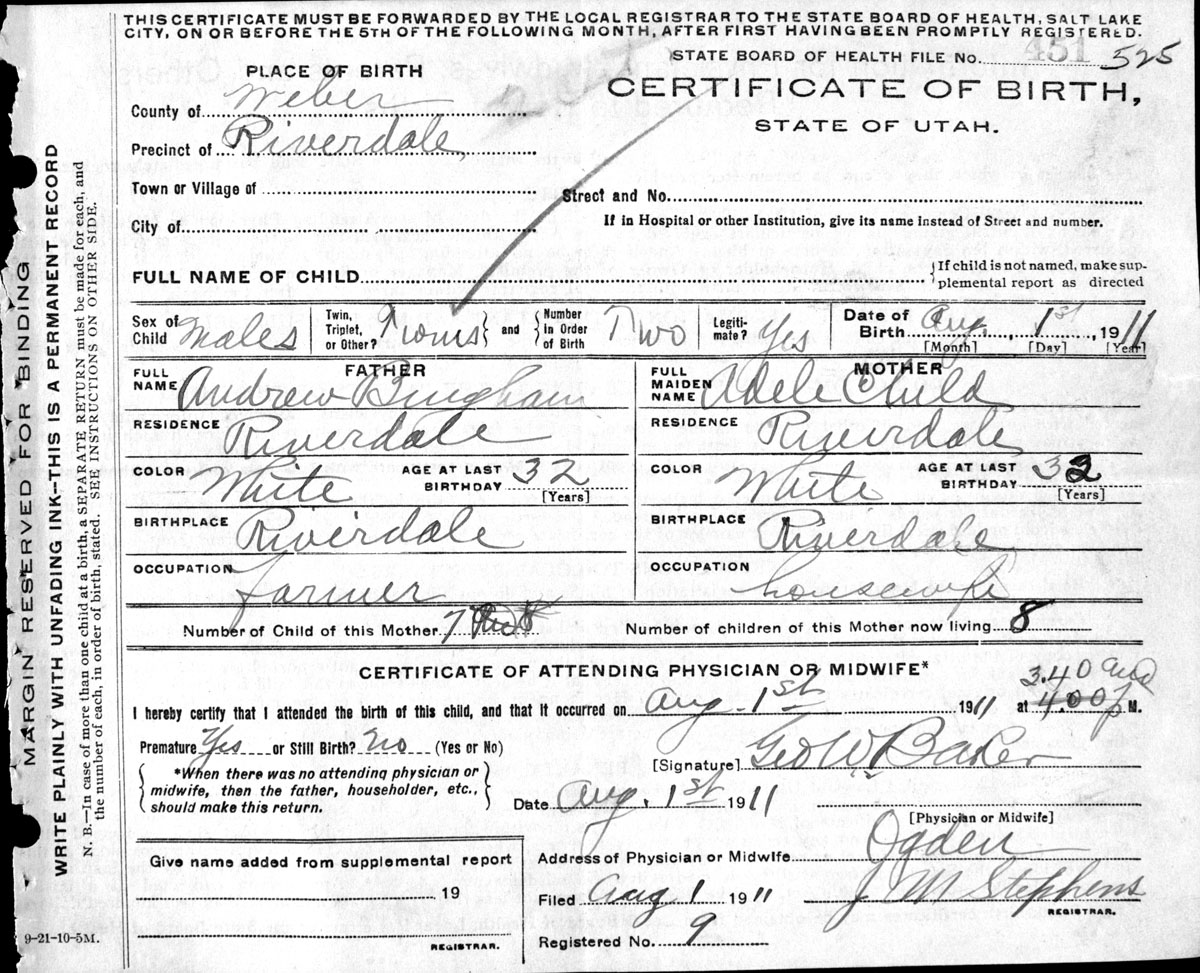 THIS CERTIFICATE MUST BE FORWARDED BY THE LOCAL REGISTRAR TO THE STATE BOARD OF HEALTH, SALT LAKE
CITY, ON OR BEFORE THE 5TH OF THE FOLLOWING MONTH, AFTER FIRST HAVING BEEN PROMPTLY REGISTERED.
STATE BOARD OF HEALTH FILE No. 451 525
PLACE OF BIRTH
CERTIFICATE OF BIRTH,
STATE OF UTAH.
County of Weber
Precinct of Riverdale
Town or Village of
Street and No.
City of
If in Hospital or other Institution, give its name instead of Street and number.
FULL NAME OF CHILD
If child is not named, make sup-
plemental report as directed
Sex of Child Males
Twin, Triplet, or Other? Twins and Number in Order of Birth Two
Legiti-mate? Yes
Date of Birth Aug. 1st 1911
[Month] [Day] [Year]
FATHER
MOTHER
FULL NAME Andrew Bingham
FULL MAIDEN NAME Adele Child
RESIDENCE Riverdale
RESIDENCE Riverdale
COLOR White AGE AT LAST BIRTHDAY 32 [Years]
COLOR White AGE AT LAST BIRTHDAY 32 [Years]
BIRTHPLACE Riverdale
BIRTHPLACE Riverdale
OCCUPATION farmer
OCCUPATION housewife
Number of Child of this Mother 7 8
Number of children of this Mother now living 8
CERTIFICATE OF ATTENDING PHYSICIAN OR MIDWIFE*
3.40 and
I hereby certify that I attended the birth of this child, and that it occurred on Aug. 1st 1911 at 4.00 p M.
Premature Yes or Still Birth? No (Yes or No)
[Signature] Geo W Baker
*When there was no attending physician or
midwife, then the father, householder, etc.,
should make this return.
Date Aug. 1st 1911
[Physician or Midwife]
Address of Physician or Midwife Ogden
Give name added from supplemental report
19
REGISTRAR.
Filed Aug 1 1911
J M Stephens
REGISTRAR.
Registered No. 9
9-21-10-5M.
MARGIN RESERVED FOR BINDING
WRITE PLAINLY WITH UNFADING INK--THIS IS A PERMANENT RECORD
N. B.--In case of more than one child at a birth, a SEPARATE RETURN must be made for each, and
the number of each, in order of birth, stated. SEE INSTRUCTIONS ON OTHER SIDE.